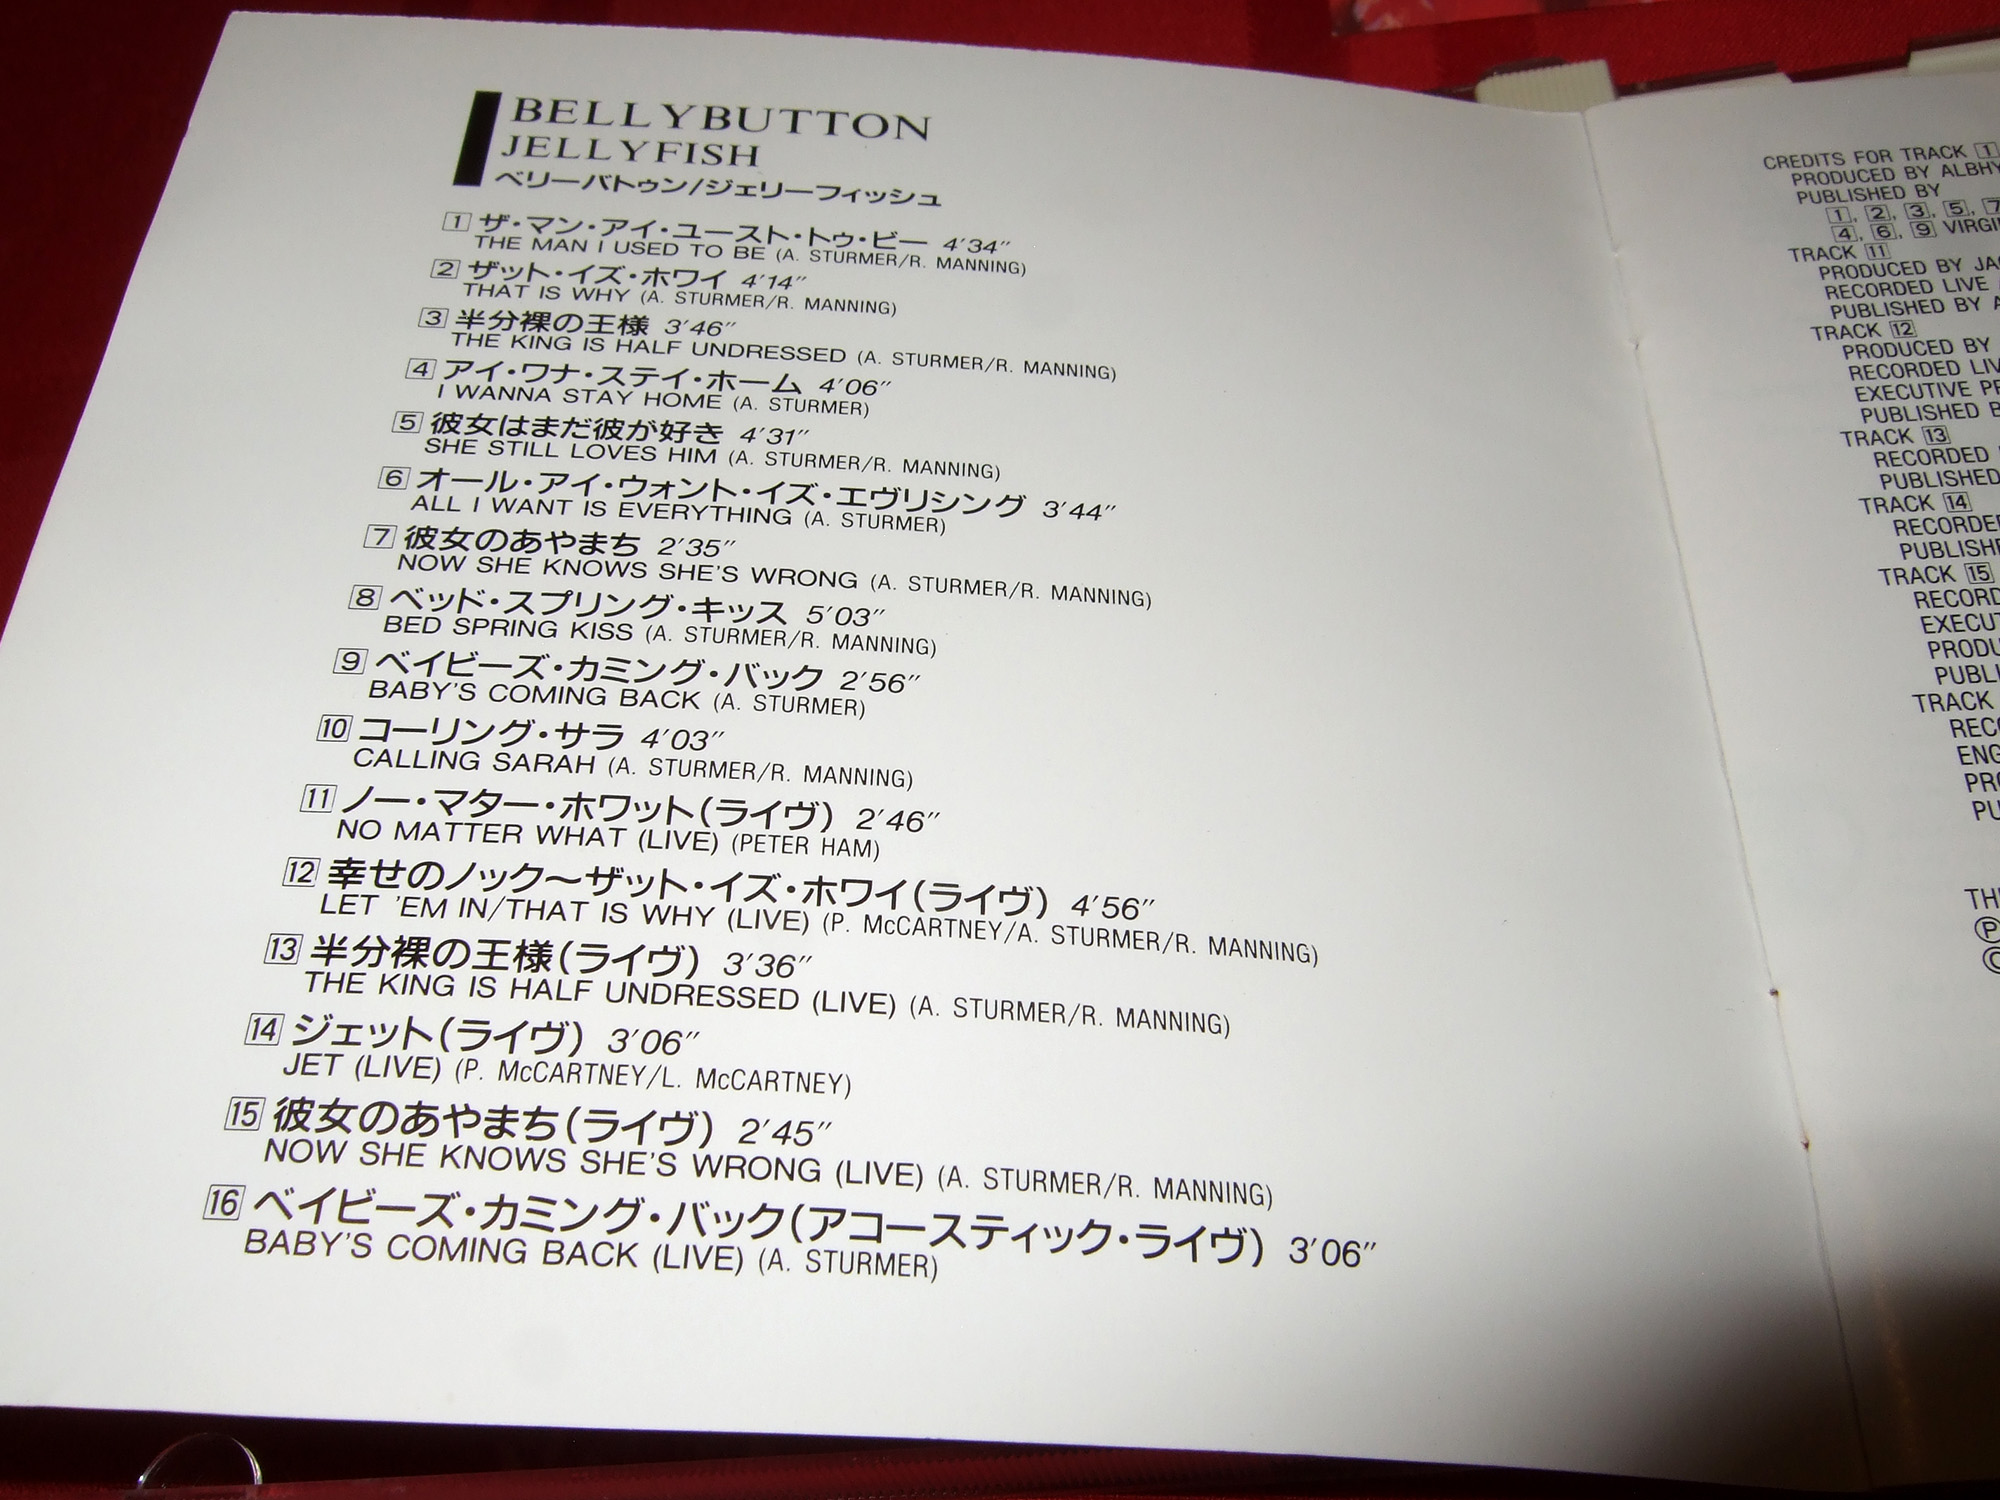 BELLYBUTTON
JELLYFISH
ベリーバトゥン/ジェリーフィッシュ
1 ザ・マン・アイ・ユースト・トゥ・ビー 4'34"
THE MAN I USED TO BE (A. STURMER/R. MANNING)
2 ザット・イズ・ホワイ 4'14"
THAT IS WHY (A. STURMER/R. MANNING)
3 半分裸の王様 3'46"
THE KING IS HALF UNDRESSED (A. STURMER/R. MANNING)
4 アイ・ワナ・ステイ・ホーム 4'06"
I WANNA STAY HOME (A. STURMER)
5 彼女はまだ彼が好き 4'31"
SHE STILL LOVES HIM (A. STURMER/R. MANNING)
6 オール・アイ・ウォント・イズ・エヴリシング 3'44"
ALL I WANT IS EVERYTHING (A. STURMER)
7 彼女のあやまち 2'35"
NOW SHE KNOWS SHE'S WRONG (A. STURMER/R. MANNING)
8 ベッド・スプリング・キッス 5'03"
BED SPRING KISS (A. STURMER/R. MANNING)
9 ベイビーズ・カミング・バック 2'56"
BABY'S COMING BACK (A. STURMER)
10 コーリング・サラ 4'03"
CALLING SARAH (A. STURMER/R. MANNING)
11 ノー・マター・ホワット(ライヴ) 2'46"
NO MATTER WHAT (LIVE) (PETER HAM)
12 幸せのノック〜ザット・イズ・ホワイ(ライヴ) 4'56"
LET 'EM IN/THAT IS WHY (LIVE) (P. McCARTNEY/A. STURMER/R. MANNING)
13 半分裸の王様(ライヴ) 3'36"
THE KING IS HALF UNDRESSED (LIVE) (A. STURMER/R. MANNING)
14 ジェット(ライヴ) 3'06"
JET (LIVE) (P. McCARTNEY/L. McCARTNEY)
15 彼女のあやまち(ライヴ) 2'45"
NOW SHE KNOWS SHE'S WRONG (LIVE) (A. STURMER/R. MANNING)
16 ベイビーズ・カミング・バック(アコースティック・ライヴ) 3'06"
BABY'S COMING BACK (LIVE) (A. STURMER)
CREDITS FOR TRACK 1
PRODUCED BY ALBHY
PUBLISHED BY
1, 2, 3, 5, 7
4, 6, 9
TRACK 11
PRODUCED BY
RECORDED LIVE
PUBLISHED BY
TRACK 12
PRODUCED BY
RECORDED
EXECUTIVE
PUBLISHED
TRACK 13
RECORDED
PUBLISHED
TRACK 14
TRACK 15
TRACK
℗
©